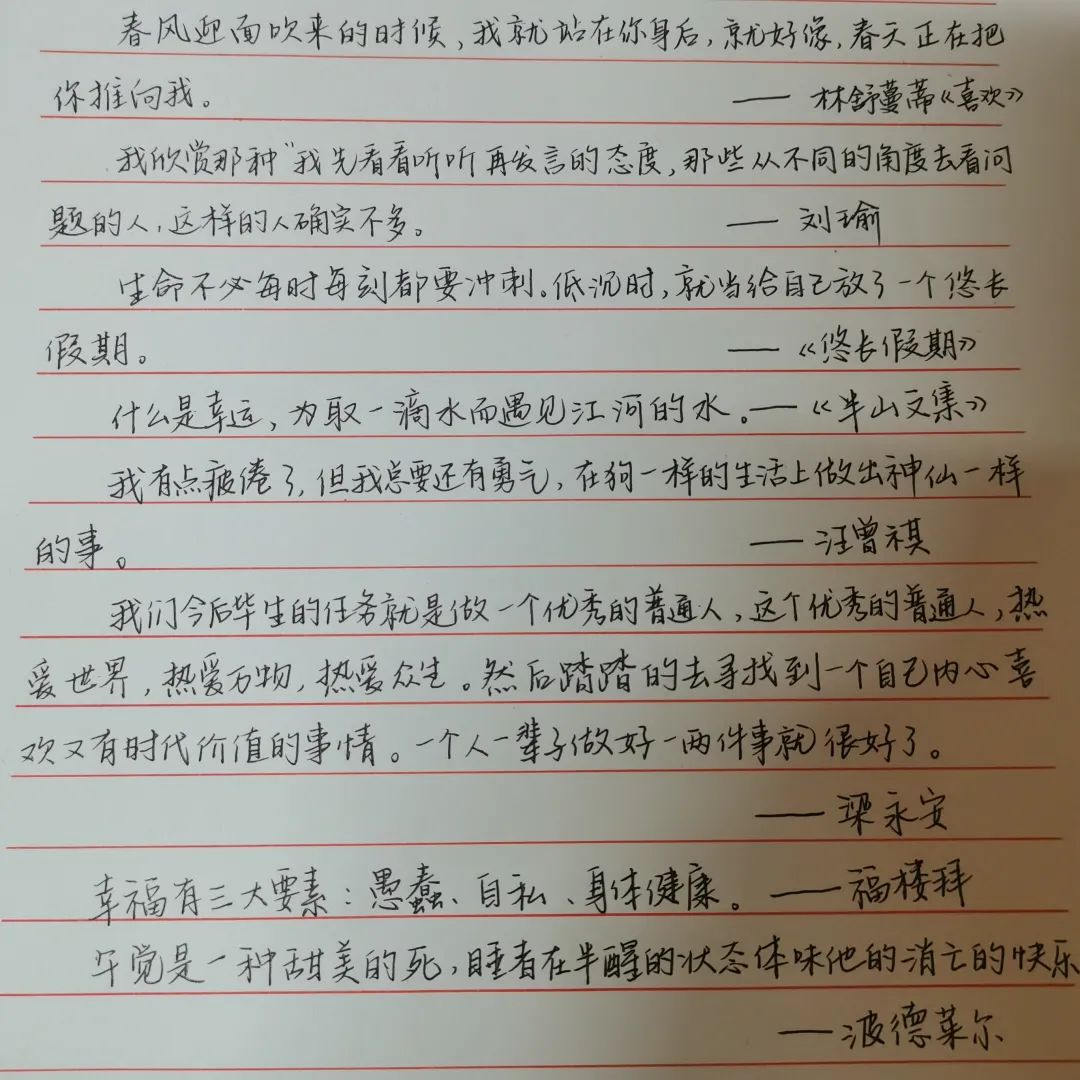 春风迎面吹来的时候,我就站在你身后,就好像,春天正在把
你推向我。 —— 林舒蔓蒂《喜欢》
我欣赏那种“我先看看听听再发言的态度,那些从不同的角度去看问
题的人,这样的人确实不多。 —— 刘瑜
生命不必每时每刻都要冲刺。低沉时,就当给自己放了一个悠长
假期。 ——《悠长假期》
什么是幸运,为取一滴水而遇见江河的水。——《半山文集》
我有点疲倦了,但我总要还有勇气,在狗一样的生活上做出神仙一样
的事。 —— 汪曾祺
我们今后毕生的任务就是做一个优秀的普通人,这个优秀的普通人,热
爱世界,热爱万物,热爱众生。然后踏踏的去寻找到一个自己内心喜
欢又有时代价值的事情。一个人一辈子做好一两件事就很好了。
—— 梁永安
幸福有三大要素:愚蠢、自私、身体健康。——福楼拜
午觉是一种甜美的死,睡者在半醒的状态体味他的消亡的快乐
——波德莱尔